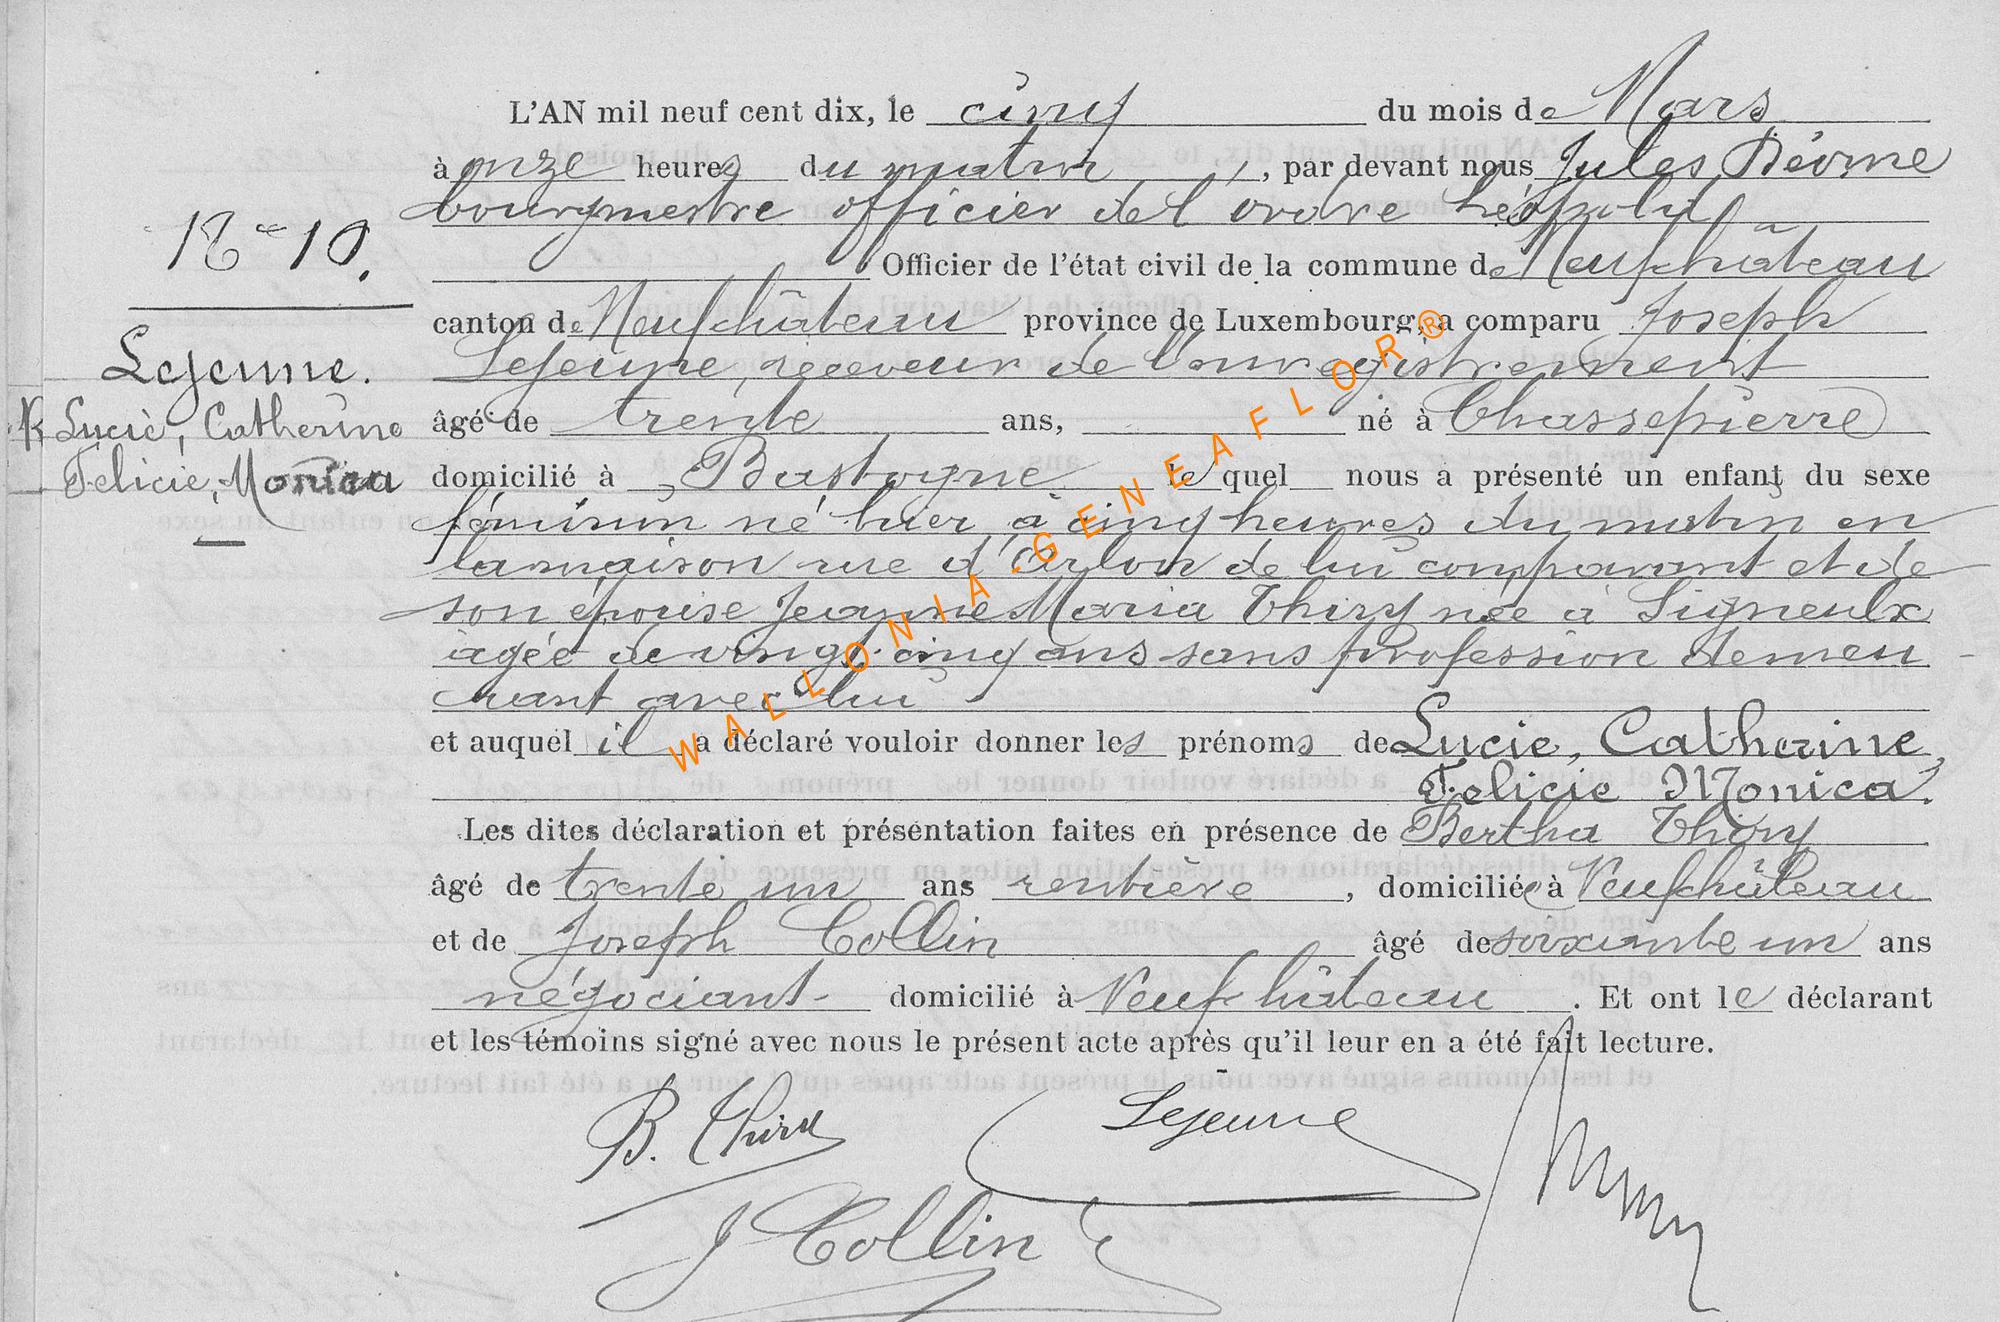 L'AN mil neuf cent dix, le cinq du mois de Mars
à onze heures du matin, par devant nous Jules
bourgmestre officier de l'ordre Léopold
Officier de l'état civil de la commune de Neufchâteau
canton de Neufchâteau province de Luxembourg, a comparu Joseph
Lejeune, receveur de l'enregistrement
âgé de trente ans, né à Chassepierre
domicilié à Bastogne lequel nous a présenté un enfant du sexe
féminin né hier à cinq heures du matin en
la maison rue d'Arlon de lui comparant et de
son épouse Jeanne Maria Thiry née à Signeulx
âgée de vingt cinq ans sans profession demeu
rant avec lui
et auquel il a déclaré vouloir donner les prénoms de Lucie, Catherine,
Felicie Monica.
Les dites déclaration et présentation faites en présence de Bertha Thiry
âgé de trente un ans rentière, domiciliée à Neufchâteau
et de Joseph Collin âgé de soixante un ans
négociant domicilié à Neufchâteau. Et ont le déclarant
et les témoins signé avec nous le présent acte après qu'il leur en a été fait lecture.
B. Thiry
Lejeune
J Collin
N° 10.
Lejeune.
Lucie, Catherine
Felicie, Monica
WALLONIA-GENEAFLOR®